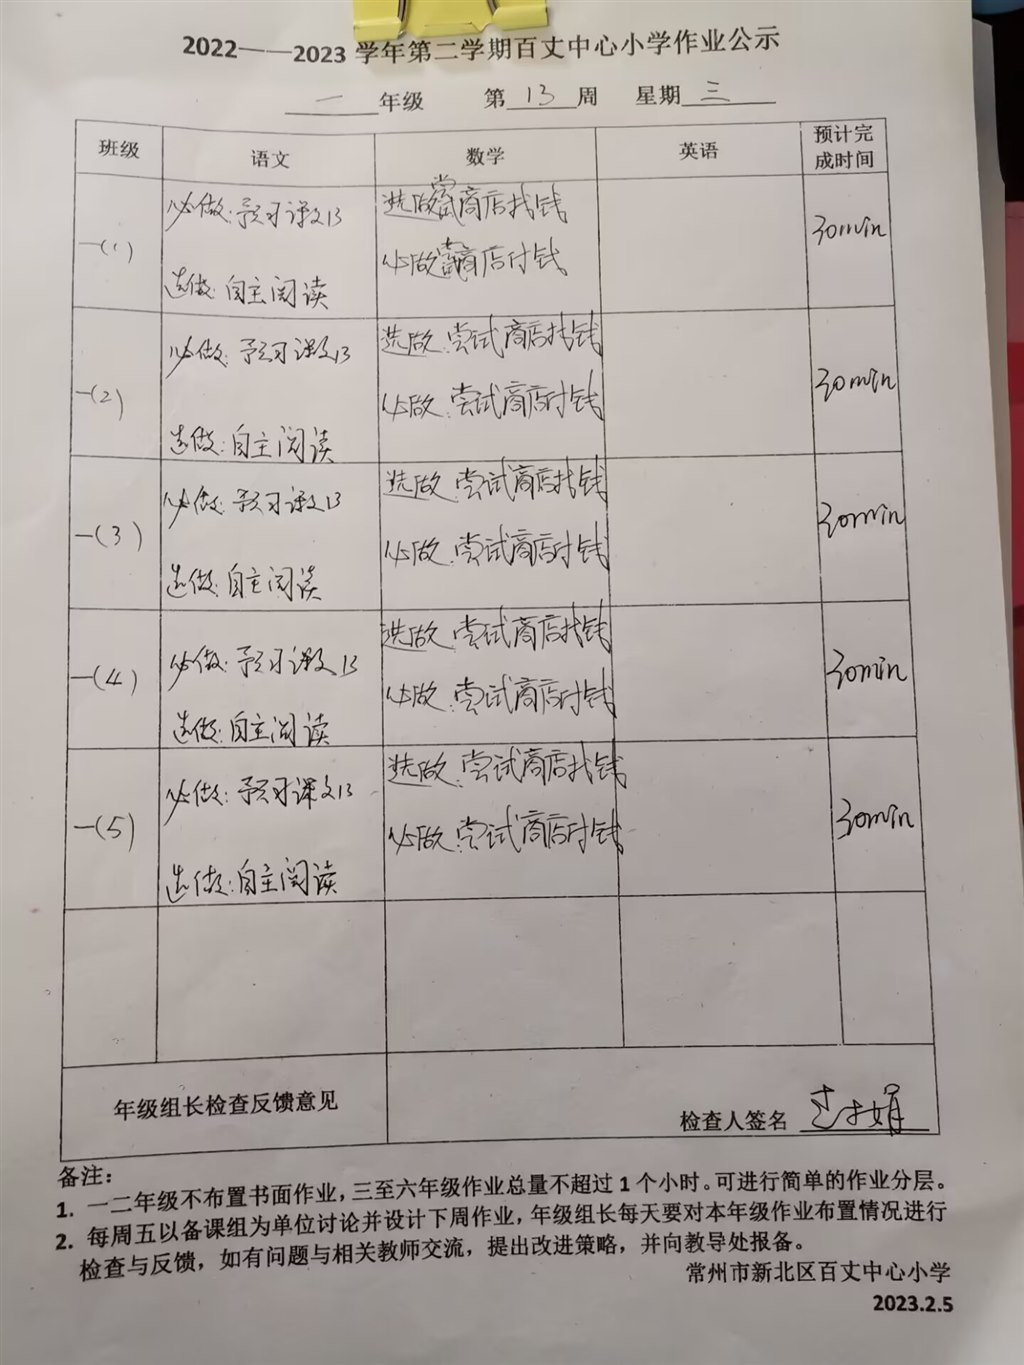 2022——2023学年第二学期百丈中心小学作业公示
一 年级 第 13 周 星期 三
班级 语文 数学 英语 预计完成时间
一(1) 必做:预习课文13 选做 尝试商店找钱 30min
选做:自主阅读 必做 尝试商店付钱
一(2) 必做:预习课文13 选做 尝试商店找钱 30min
选做:自主阅读 必做 尝试商店付钱
一(3) 必做:预习课文13 选做 尝试商店找钱 30min
选做:自主阅读 必做 尝试商店付钱
一(4) 必做:预习课文13 选做 尝试商店找钱 30min
选做:自主阅读 必做 尝试商店付钱
一(5) 必做:预习课文13 选做 尝试商店找钱 30min
选做:自主阅读 必做 尝试商店付钱
年级组长检查反馈意见 检查人签名
备注:
1. 一二年级不布置书面作业,三至六年级作业总量不超过1个小时。可进行简单的作业分层。
2. 每周五以备课组为单位讨论并设计下周作业,年级组长每天要对本年级作业布置情况进行
检查与反馈,如有问题与相关教师交流,提出改进策略,并向教导处报备。
常州市新北区百丈中心小学
2023.2.5